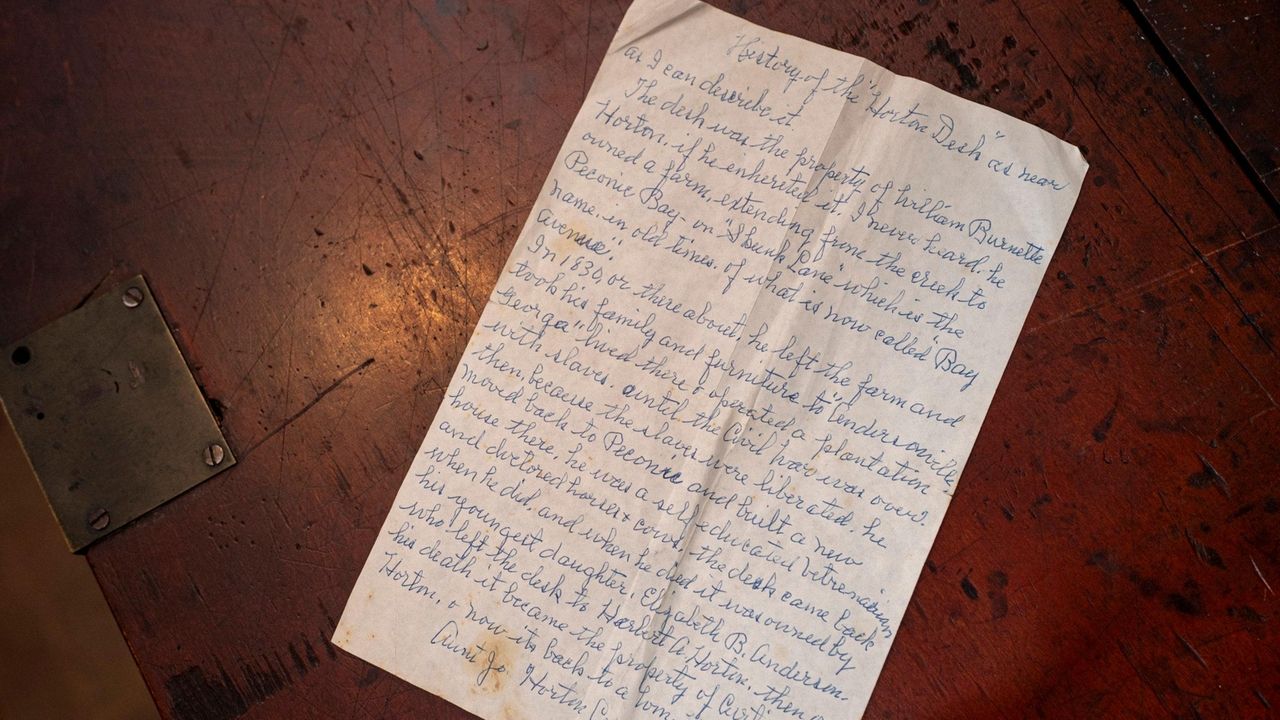 History of the "Horton Desk" as near
as I can describe it.
The desk was the property of William Burnette
Horton, if he enherited it, I never heard, he
owned a farm, extending from the creek to
Peconic Bay- on "Skunk Lane" which is the
name, in old times, of what is now called "Bay
Avenue".
In 1830 or there about, he left the farm and
took his family and furniture to "Andersonville,
Georga" lived there & operated a plantation
with slaves. until the Civil war was over.
then, because the slaves were liberated, he
moved back to Peconic and built a new
house there, he was a self educated vitrenarian
and doctored horses & cows, the desk came back
when he did, and when he died it was owned by
his youngest daughter, Elizabeth B. Anderson-
who left the desk to Harbert A. Horton, then
his death it became the property of
Horton, & now its back to a
Aunt Jo Horton